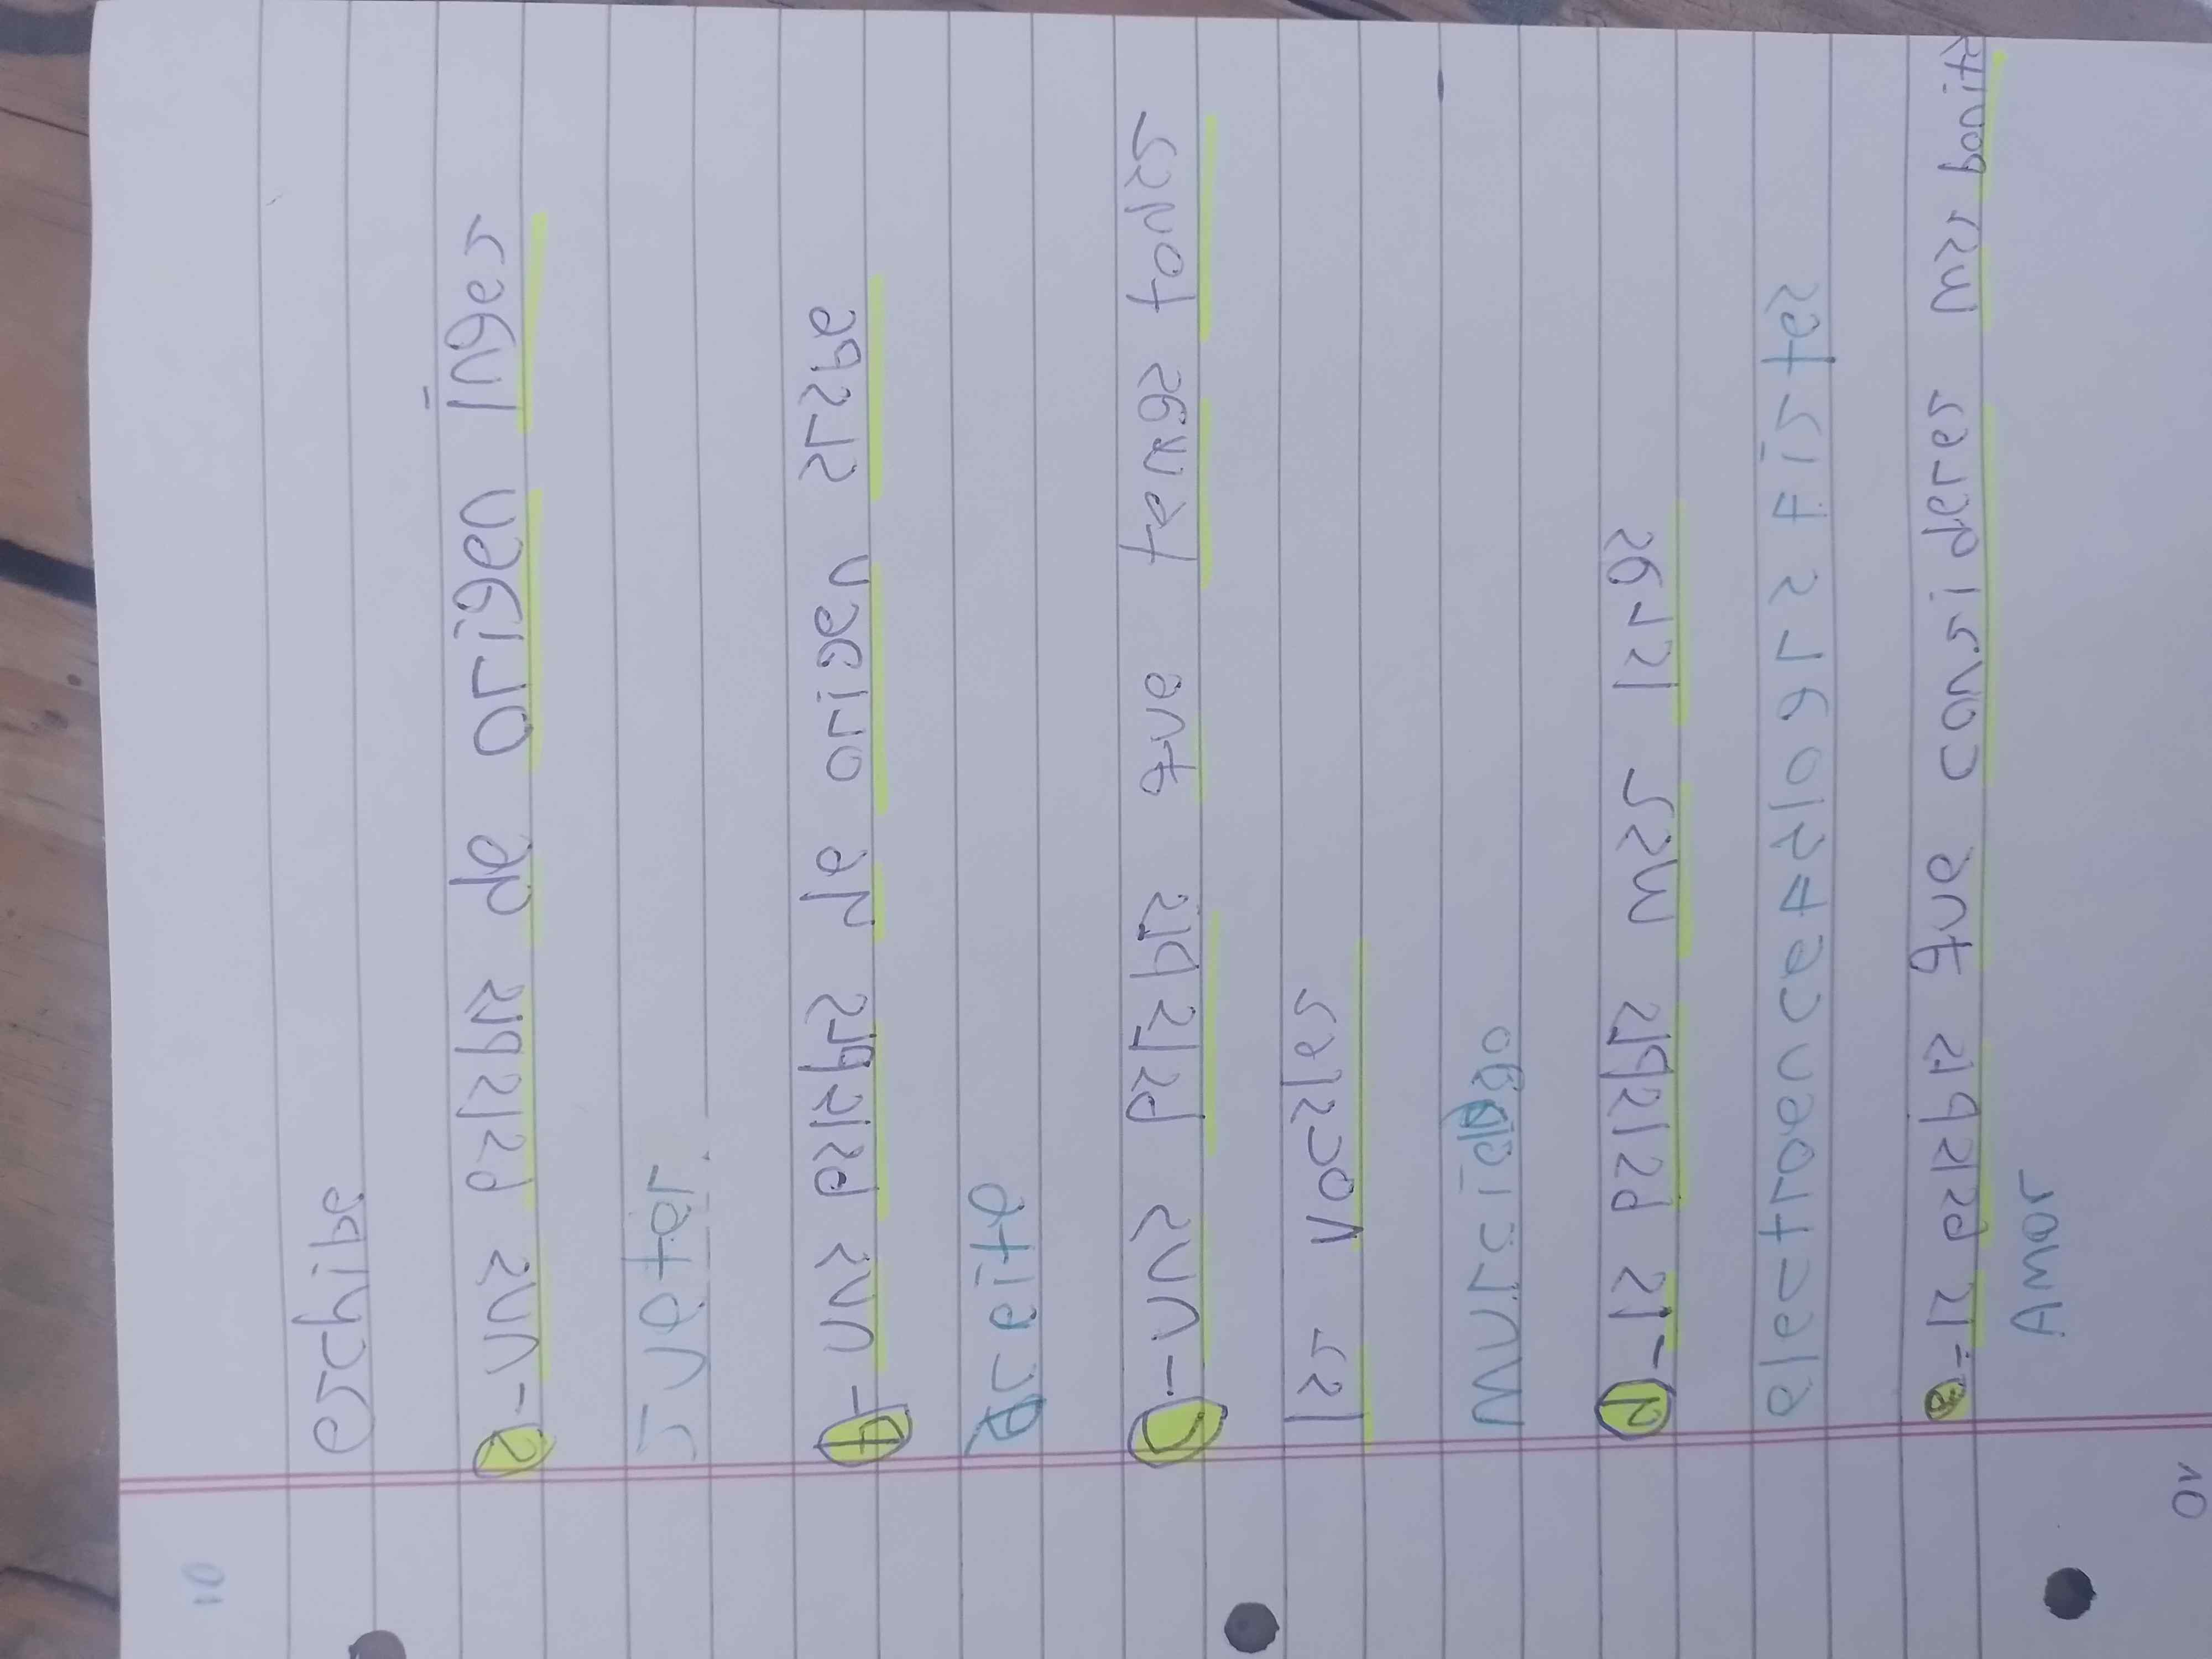 10
eschibe
a-una palabra de origen ingles
suetar.
b-una palabra de origen arabe
aceite
c-una palabra que tenga todas
las vocales
murcielago
d-la palabra mas larga
electroencefalografista
e-la palabra que consideres mas bonita
Amor
10